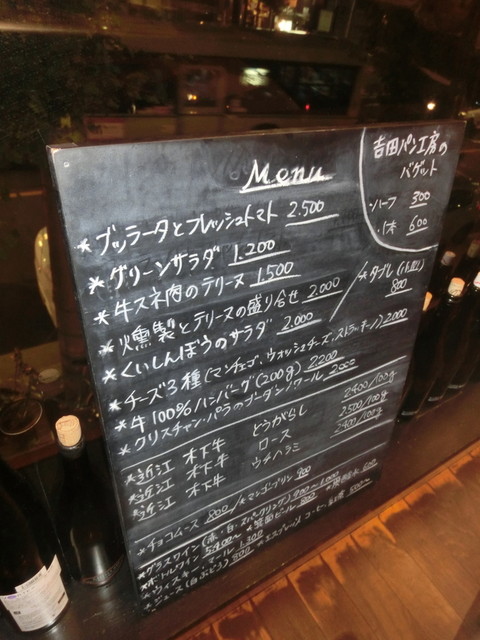 Menu
吉田パン工房の
バゲット
・ハーフ 300
・1本 600
*ブッラータとフレッシュトマト 2.500
*グリーンサラダ 1.200
*牛スネ肉のテリーヌ 1.500
*燻製とテリーヌの盛り合せ 2.000
*タブレ(小皿) 800
*くいしんぼうのサラダ 2.000
*チーズ3種(マンチェゴ、ウォッシュチーズ、ストラッキーノ) 2.000
*牛100%ハンバーグ(200g) 2.200
*クリスチャン・パラのブーダンノワール 2.000
*近江 木下牛 とうがらし 2400/100g
*近江 木下牛 ロース 2500/100g
*近江 木下牛 ウチハラミ 2400/100g
*チョコムース 800 / *マンゴープリン 900
*グラスワイン(赤、白、スパークリング) 900~1.000
*ボトルワイン 5.400~ *箕面ビール 800
*ウィスキー、マール 1.300
*ジュース(白ぶどう) 800 *エスプレッソ、コーヒー、紅茶 500~